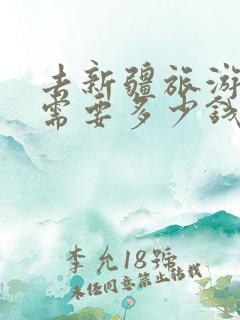 去新疆旅游
需要多少钱
李允18号
未经同意禁止转载